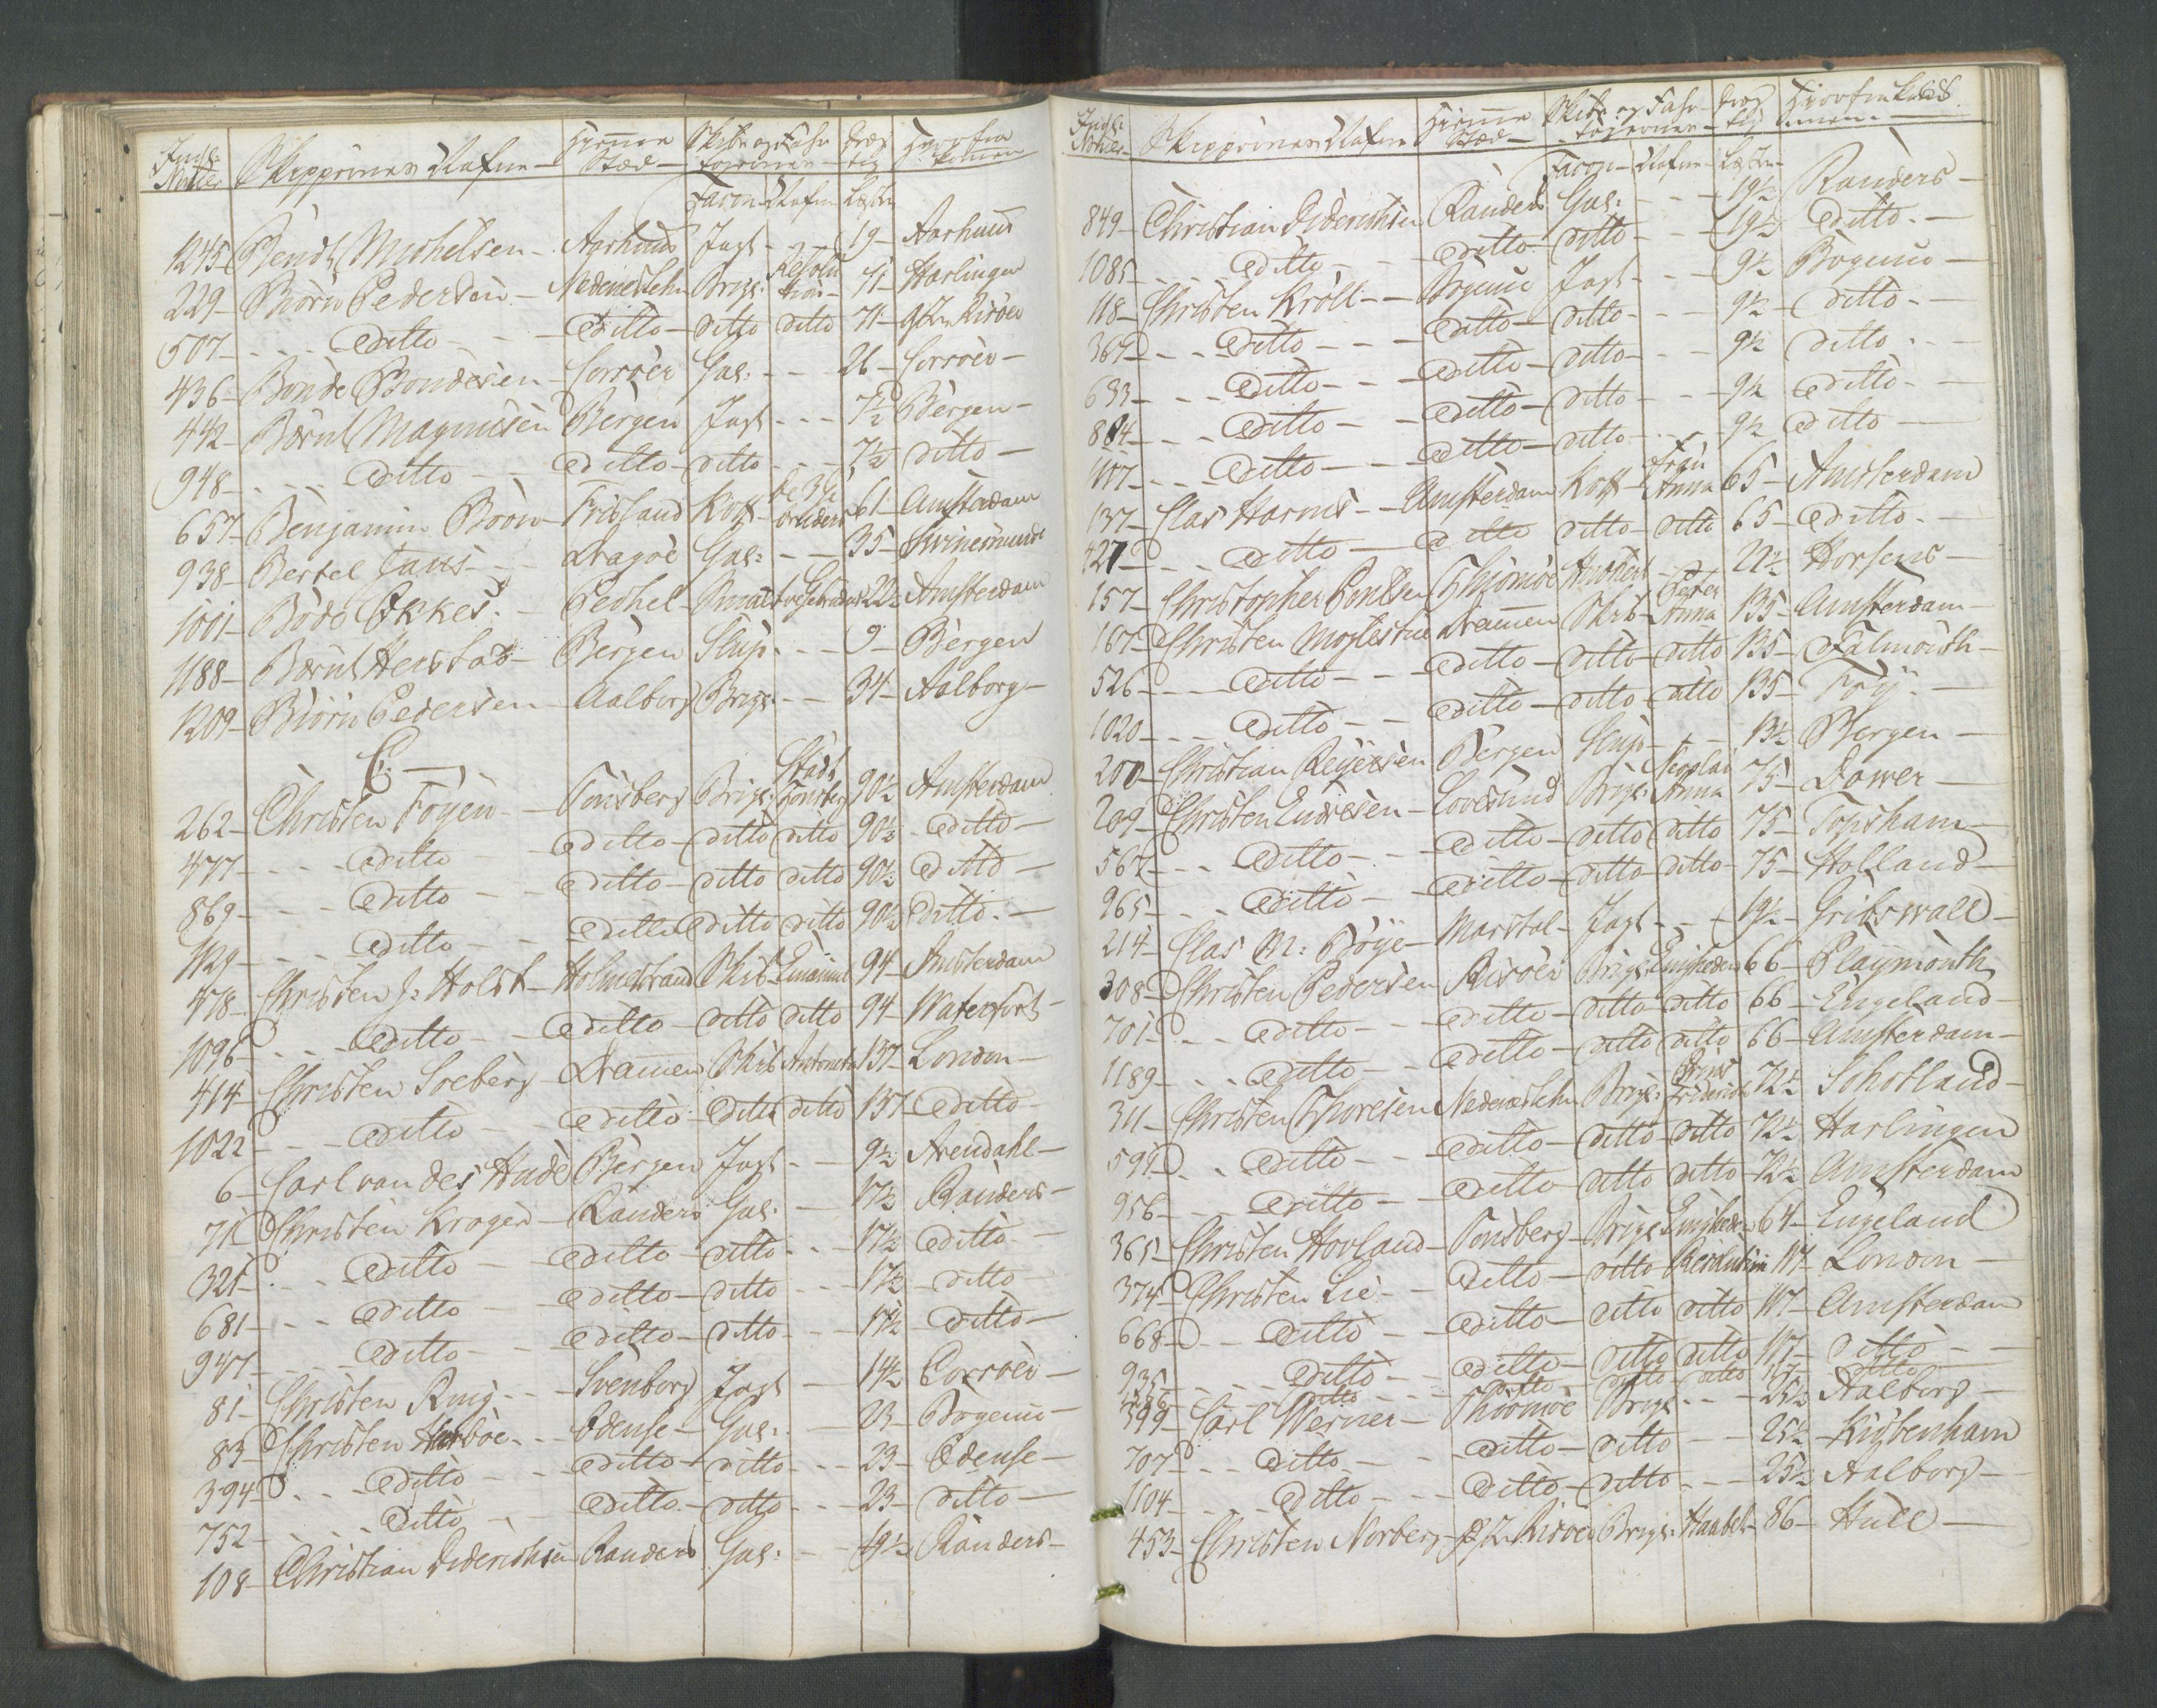 Indf: Skippernes Nafne Hiemme Skibs og Fahr Dræg Hvorfra
Novies Stæd tøyernes tig komen
Facon Nafne Læster
1245 Bendt Michelsen Aarhuus Jagt 19 Aarhuus
229 Biørn Pedersen Nedenes Lehn Brigs: Resolution 71 Harlingen
507 ditto ditto ditto ditto 71 Ø: Riisøer
436 Bonde Bondesen Corsøer Gal: 26 Corsøer
442 Børnt Magnusen Bergen Jagt 7½ Bergen
948 ditto ditto ditto 7½ ditto
657 Benjamin Boon Friisland Koff de 3 brøders 61 Amsterdam
938 Bertel Jans Dragøe Gal: 35 Svinemunde
1001 Bode Ekkes Pechel Smak 22½ Amsterdam
1188 Børnt Herstad Bergen Slup 9 Bergen
1209 Biørn Pedersen Aalborg Brigs 34 Aalborg
C.
262 Christen Foyen Tønsberg Brigs: Stadt Tønsberg 90½ Amsterdam
477 ditto ditto ditto ditto 90½ ditto
869 ditto ditto ditto ditto 90½ ditto
1129 ditto ditto ditto ditto 90½ ditto
478 Christen J: Holst Holmestrand Skib Emanuel 94 Amsterdam
1096 ditto ditto ditto ditto 94 Waterfort
414 Christen Soeberg Dramen Skib Antonetta 137 London
1022 ditto ditto ditto ditto 137 ditto
6 Carl van der Hude Bergen Jagt 9½ Arendahl
71 Christen Kroger Randers Gal: 17½ Randers
321 ditto ditto ditto 17½ ditto
681 ditto ditto ditto 17½ ditto
947 ditto ditto ditto 17½ ditto
81 Christen Ring Svenborg Jagt 14½ Corsøer
83 Christen Harboe Odense Gal: 23 Bogense
394 ditto ditto ditto 23 Odense
752 ditto ditto ditto 23 ditto
108 Christian Diderichsen Randers Gal: 19½ Randers
Indf: Skippernes Nafne Hiemme Skibs og Fahr Dræg Hvorfra
Novies Stæd tøyernes tig komen
Facon Nafne Læster
849 Christian Diderichsen Randers Gal: 19½ Randers
1085 ditto ditto ditto 19½ ditto
118 Christen Kroll Bogense Jagt 9½ Bogense
367 ditto ditto ditto 9½ ditto
633 ditto ditto ditto 9½ ditto
884 ditto ditto ditto 9½ ditto
1107 ditto ditto ditto 9½ ditto
137 Clas Harms Amsterdam Koff Frau Anna 65 Amsterdam
427 ditto ditto ditto ditto 65 ditto
157 Christopher Poulsen Thiømøe 21½ Horsens
167 Christen Moglestue Dramen Skib Peter Anna 135 Amsterdam
526 ditto ditto ditto ditto 135 Falmouth
1020 ditto ditto ditto ditto 135 Foÿ
200 Christian Reyersen Bergen Slup 13½ Bergen
209 Christen Endresen Lovesund Brigs: Nicolai Anna 75 Dower
567 ditto ditto ditto ditto 75 Topsham
965 ditto ditto ditto ditto 75 Holland
214 Clas M: Boye Marstal Jagt 19½ Gribswald
308 Christen Pedersen Riisøer Brigs Enigheden 66 Playmouth
701 ditto ditto ditto ditto 66 Engeland
1189 ditto ditto ditto ditto 66 Amsterdam
311 Christen Thoresen Nedenes Lehn Brigs: Prins Friderich 72½ Schotland
595 ditto ditto ditto ditto 72½ Harlingen
956 ditto ditto ditto ditto 72½ Amsterdam
365 Christen Hovland Tønsberg Brigs Enigheden 64 Engeland
374 Christen Lie ditto ditto Resolution 117 London
668 ditto ditto ditto ditto 117 Amsterdam
935 ditto ditto ditto ditto 117 ditto
ditto ditto ditto ditto 117 ditto
399 Carl Werner Thiømøe Brigs 25½ Aalborg
707 ditto ditto ditto 25½ Kiøbenhavn
1104 ditto ditto ditto 25½ Aalborg
453 Christen Norberg Ø: Riisøer Brigs: Haabet 86 Hull